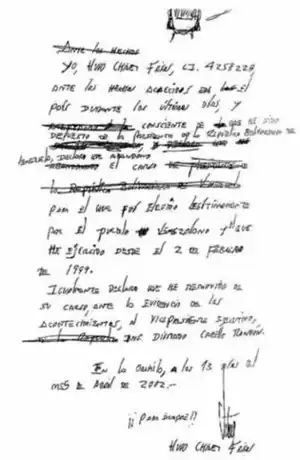 Ante los hechos
Yo, Hugo Chavez Frías, C.I. 4258228
ante los hechos acaecidos en el
país durante los últimos días, y
consciente de que he sido
depuesto de la Presidencia de la República Bolivariana de
Venezuela, declaro que abandono
el cargo de Presidente de
la República Bolivariana de Venezuela
para el que fui electo legítimamente
por el pueblo Venezolano y que
he ejercido desde el 2 de Febrero
de 1999.
Igualmente declaro que he removido de
su cargo, ante la evidencia de los
acontecimientos, al Vicepresidente Ejecutivo,
Ing. Diosdado Cabello Rondón.
En la Orchila, a los 13 días del
mes de Abril de 2002.-
¡¡Para siempre!!
Hugo Chavez Frías